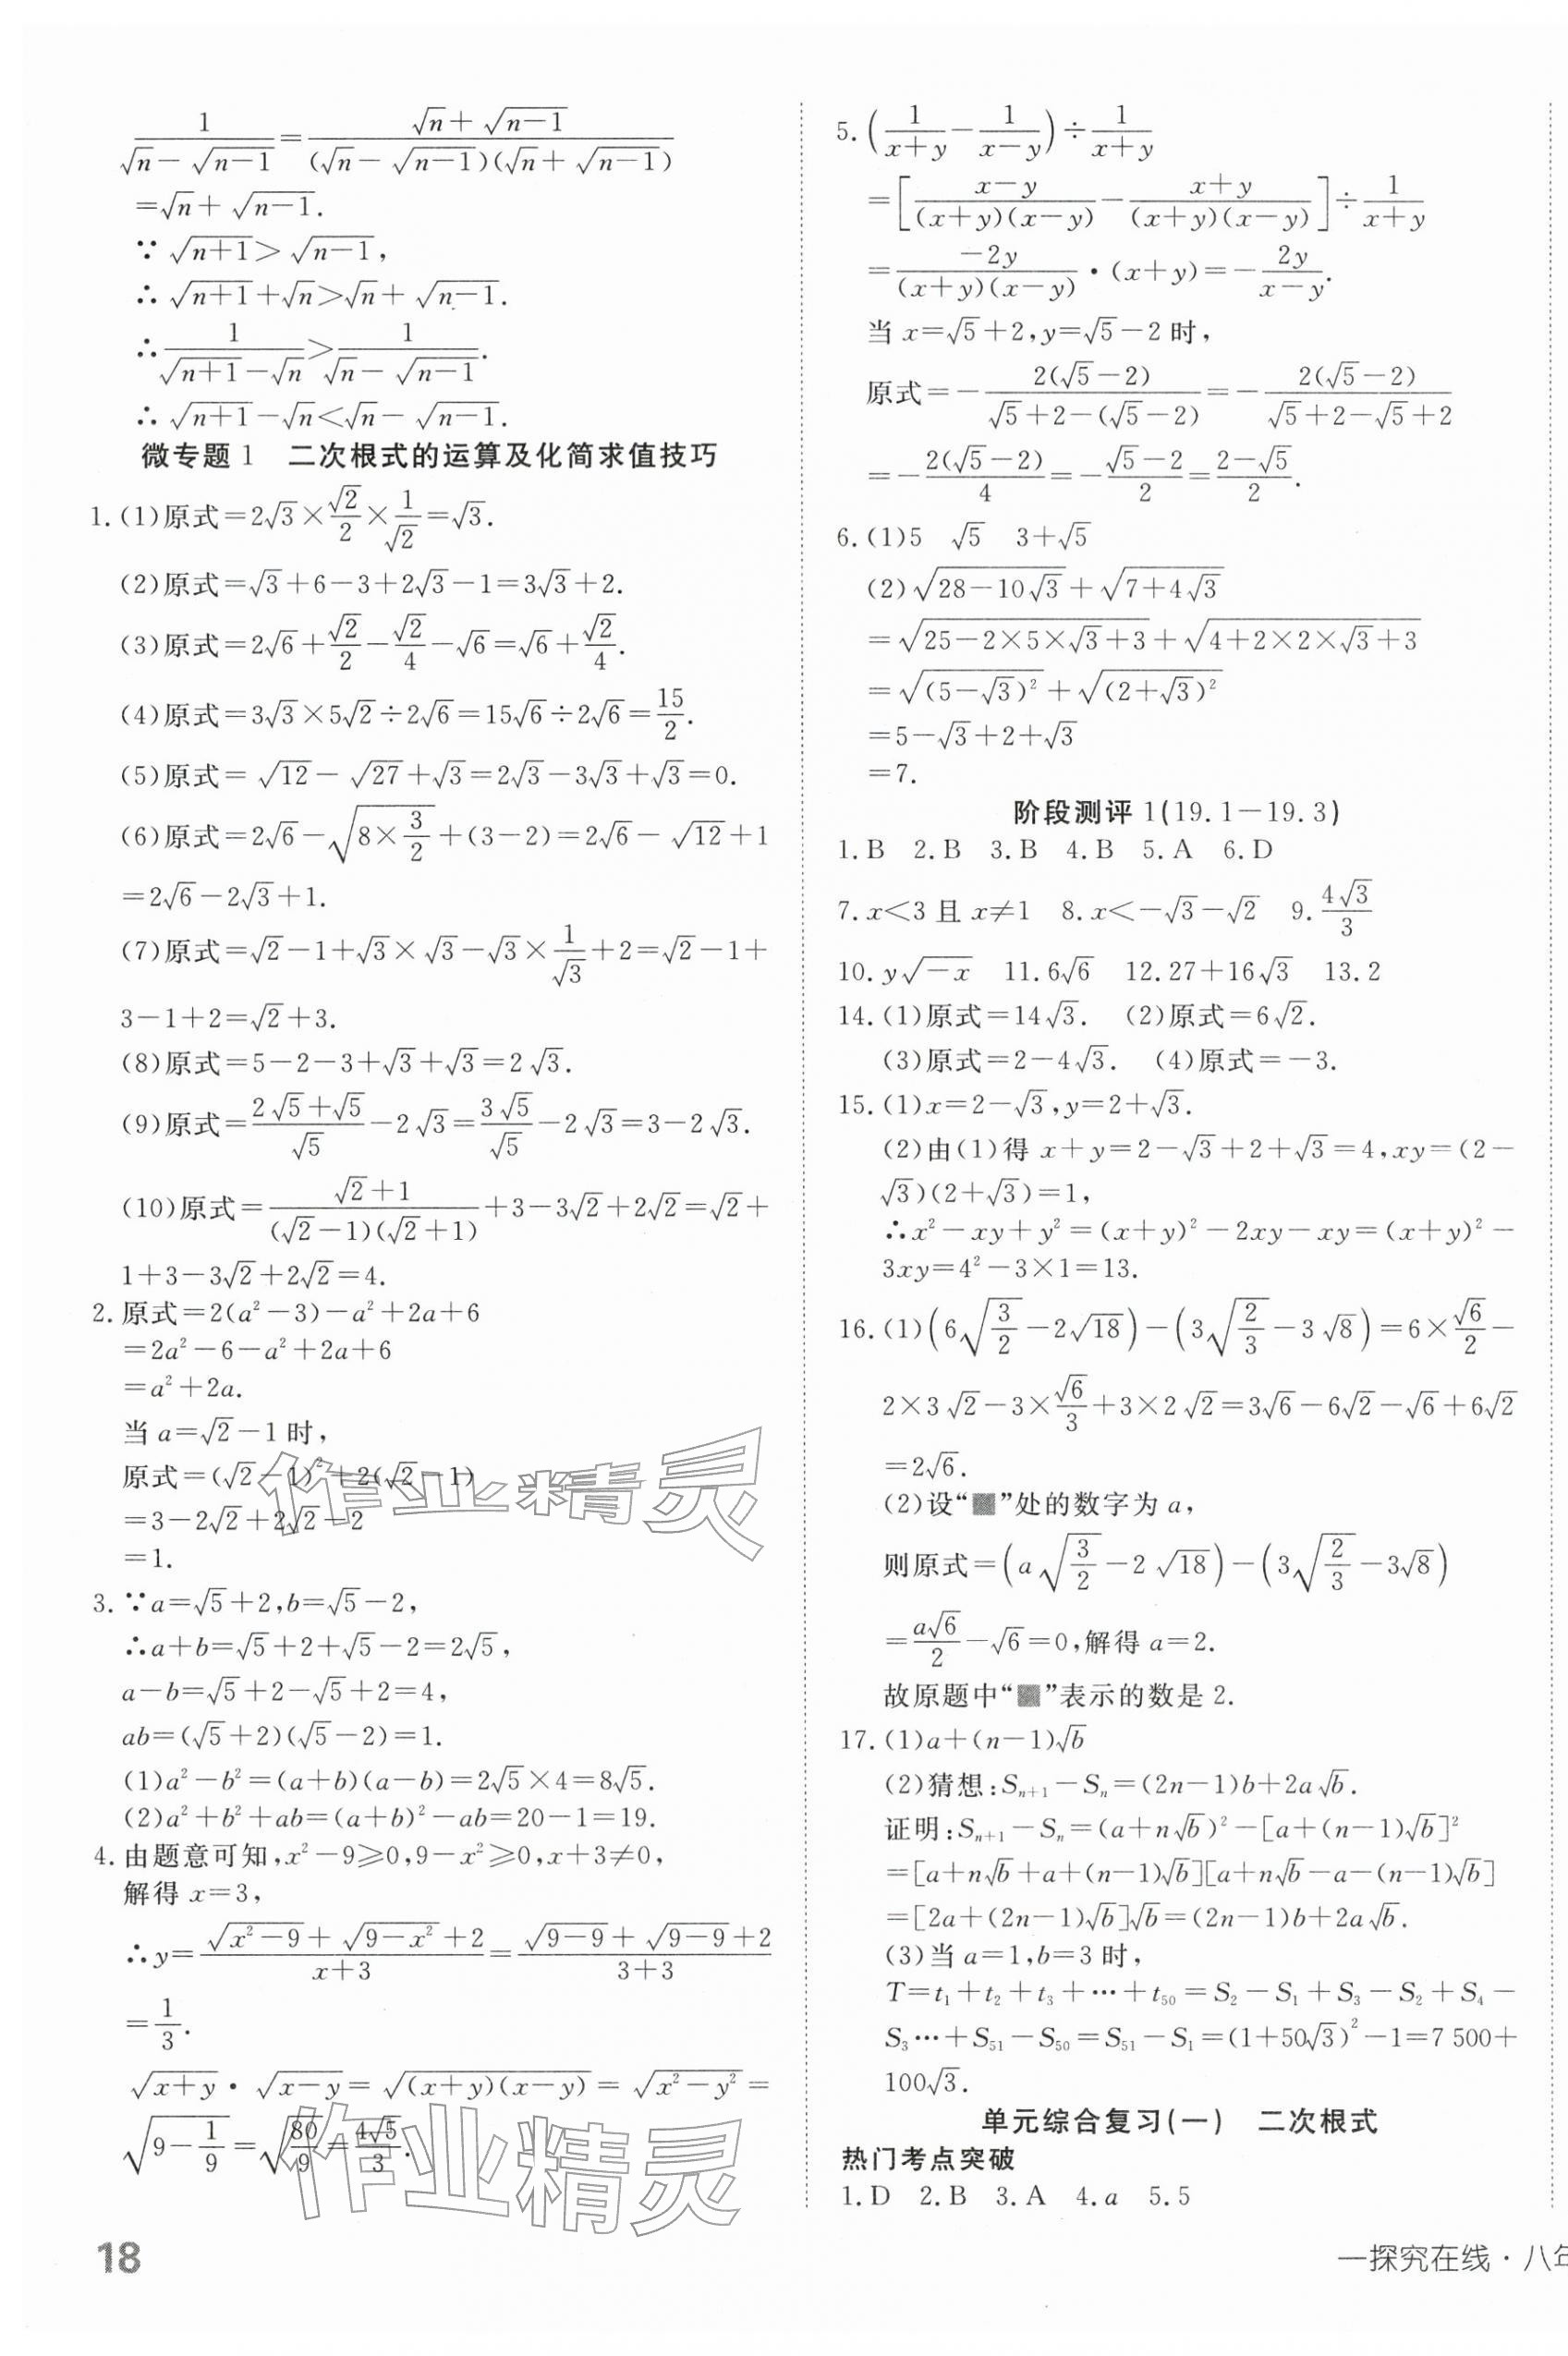 $\frac{1}{\sqrt{n}-\sqrt{n-1}}=\frac{\sqrt{n}+\sqrt{n-1}}{(\sqrt{n}-\sqrt{n-1})(\sqrt{n}+\sqrt{n-1})}$
$=\sqrt{n}+\sqrt{n-1}$.
∵$\sqrt{n+1}>\sqrt{n-1}$,
∴$\sqrt{n+1}+\sqrt{n}>\sqrt{n}+\sqrt{n-1}$.
∴$\frac{1}{\sqrt{n+1}-\sqrt{n}}>\frac{1}{\sqrt{n}-\sqrt{n-1}}$.
∴$\sqrt{n+1}-\sqrt{n}<\sqrt{n}-\sqrt{n-1}$.
微专题1 二次根式的运算及化简求值技巧
1.(1)原式=$2\sqrt{3}×\frac{\sqrt{2}}{2}×\frac{1}{\sqrt{2}}=\sqrt{3}$.
(2)原式=$\sqrt{3}+6-3+2\sqrt{3}-1=3\sqrt{3}+2$.
(3)原式=$2\sqrt{6}+\frac{\sqrt{2}}{2}-\frac{\sqrt{2}}{4}-\sqrt{6}=\sqrt{6}+\frac{\sqrt{2}}{4}$.
(4)原式=$3\sqrt{3}×5\sqrt{2}÷2\sqrt{6}=15\sqrt{6}÷2\sqrt{6}=\frac{15}{2}$.
(5)原式=$\sqrt{12}-\sqrt{27}+\sqrt{3}=2\sqrt{3}-3\sqrt{3}+\sqrt{3}=0$.
(6)原式=$2\sqrt{6}-\sqrt{8×\frac{3}{2}}+(3-2)=2\sqrt{6}-\sqrt{12}+1$
$=2\sqrt{6}-2\sqrt{3}+1$.
(7)原式=$\sqrt{2}-1+\sqrt{3}×\sqrt{3}-\sqrt{3}×\frac{1}{\sqrt{3}}+2=\sqrt{2}-1+$
$3-1+2=\sqrt{2}+3$.
(8)原式=$5-2-3+\sqrt{3}+\sqrt{3}=2\sqrt{3}$.
(9)原式=$\frac{2\sqrt{5}+\sqrt{5}}{\sqrt{5}}-2\sqrt{3}=\frac{3\sqrt{5}}{\sqrt{5}}-2\sqrt{3}=3-2\sqrt{3}$.
(10)原式=$\frac{\sqrt{2}+1}{(\sqrt{2}-1)(\sqrt{2}+1)}+3-3\sqrt{2}+2\sqrt{2}=\sqrt{2}+$
$1+3-3\sqrt{2}+2\sqrt{2}=4$.
2.原式=$2(a^2-3)-a^2+2a+6$
$=2a^2-6-a^2+2a+6$
$=a^2+2a$.
当$a=\sqrt{2}-1$时,
原式=$(\sqrt{2}-1)^2+2(\sqrt{2}-1)$
$=3-2\sqrt{2}+2\sqrt{2}-2$
$=1$.
3.∵$a=\sqrt{5}+2,b=\sqrt{5}-2$,
∴$a+b=\sqrt{5}+2+\sqrt{5}-2=2\sqrt{5}$,
$a-b=\sqrt{5}+2-\sqrt{5}+2=4$,
$ab=(\sqrt{5}+2)(\sqrt{5}-2)=1$.
(1)$a^2-b^2=(a+b)(a-b)=2\sqrt{5}×4=8\sqrt{5}$.
(2)$a^2+b^2+ab=(a+b)^2-ab=20-1=19$.
4.由题意可知,$x^2-9⩾0,9-x^2⩾0,x+3≠0$,
解得$x=3$,
∴$y=\frac{\sqrt{x^2-9}+\sqrt{9-x^2}+2}{x+3}=\frac{\sqrt{9-9}+\sqrt{9-9}+2}{3+3}$
$=\frac{1}{3}$.
$\sqrt{x+y}·\sqrt{x-y}=\sqrt{(x+y)(x-y)}=\sqrt{x^2-y^2}=$
$\sqrt{9-\frac{1}{9}}=\sqrt{\frac{80}{9}}=\frac{4\sqrt{5}}{3}$.
5.$\left(\frac{1}{x+y}-\frac{1}{x-y}\right)÷\frac{1}{x+y}$
$=\left[\frac{x-y}{(x+y)(x-y)}-\frac{x+y}{(x+y)(x-y)}\right]÷\frac{1}{x+y}$
$=\frac{-2y}{(x+y)(x-y)}·(x+y)=-\frac{2y}{x-y}$.
当$x=\sqrt{5}+2,y=\sqrt{5}-2$时,
原式=$-\frac{2(\sqrt{5}-2)}{\sqrt{5}+2-(\sqrt{5}-2)}=-\frac{2(\sqrt{5}-2)}{\sqrt{5}+2-\sqrt{5}+2}$
$=-\frac{2(\sqrt{5}-2)}{4}=-\frac{\sqrt{5}-2}{2}=\frac{2-\sqrt{5}}{2}$.
6.(1)5 $\sqrt{5}$ $3+\sqrt{5}$
(2)$\sqrt{28-10\sqrt{3}}+\sqrt{7+4\sqrt{3}}$
$=\sqrt{25-2×5×\sqrt{3}+3}+\sqrt{4+2×2×\sqrt{3}+3}$
$=\sqrt{(5-\sqrt{3})^2}+\sqrt{(2+\sqrt{3})^2}$
$=5-\sqrt{3}+2+\sqrt{3}$
$=7$.
阶段测评1(19.1-19.3)
1.B 2.B 3.B 4.B 5.A 6.D
7.$x<3$且$x≠1$ 8.$x<-\sqrt{3}-\sqrt{2}$ 9.$\frac{4\sqrt{3}}{3}$
10.$y\sqrt{-x}$ 11.$6\sqrt{6}$ 12.$27+16\sqrt{3}$ 13.2
14.(1)原式=$14\sqrt{3}$. (2)原式=$6\sqrt{2}$.
(3)原式=$2-4\sqrt{3}$. (4)原式=$-3$.
15.(1)$x=2-\sqrt{3},y=2+\sqrt{3}$.
(2)由(1)得$x+y=2-\sqrt{3}+2+\sqrt{3}=4,xy=(2-$
$\sqrt{3})(2+\sqrt{3})=1$,
∴$x^2-xy+y^2=(x+y)^2-2xy-xy=(x+y)^2-$
$3xy=4^2-3×1=13$.
16.(1)$\left(6\sqrt{\frac{3}{2}}-2\sqrt{18}\right)-\left(3\sqrt{\frac{2}{3}}-3\sqrt{8}\right)=6×\frac{\sqrt{6}}{2}-$
$2×3\sqrt{2}-3×\frac{\sqrt{6}}{3}+3×2\sqrt{2}=3\sqrt{6}-6\sqrt{2}-\sqrt{6}+6\sqrt{2}$
$=2\sqrt{6}$.
(2)设“■”处的数字为$a$,
则原式=$\left(a\sqrt{\frac{3}{2}}-2\sqrt{18}\right)-\left(3\sqrt{\frac{2}{3}}-3\sqrt{8}\right)$
$=\frac{a\sqrt{6}}{2}-\sqrt{6}=0$,解得$a=2$.
故原题中“■”表示的数是2.
17.(1)$a+(n-1)\sqrt{b}$
(2)猜想:$S_{n+1}-S_n=(2n-1)b+2a\sqrt{b}$.
证明:$S_{n+1}-S_n=(a+n\sqrt{b})^2-[a+(n-1)\sqrt{b}]^2$
$=[a+n\sqrt{b}+a+(n-1)\sqrt{b}][a+n\sqrt{b}-a-(n-1)\sqrt{b}]$
$=[2a+(2n-1)\sqrt{b}]\sqrt{b}=(2n-1)b+2a\sqrt{b}$.
(3)当$a=1,b=3$时,
$T=t_1+t_2+t_3+···+t_{50}=S_2-S_1+S_3-S_2+S_4-$
$S_3···+S_{51}-S_{50}=S_{51}-S_1=(1+50\sqrt{3})^2-1=7 500+$
$100\sqrt{3}$.
单元综合复习(一) 二次根式
热门考点突破
1.D 2.B 3.A 4.$a$ 5.5
作业精灵
作业精灵
18
一探究在线·八年